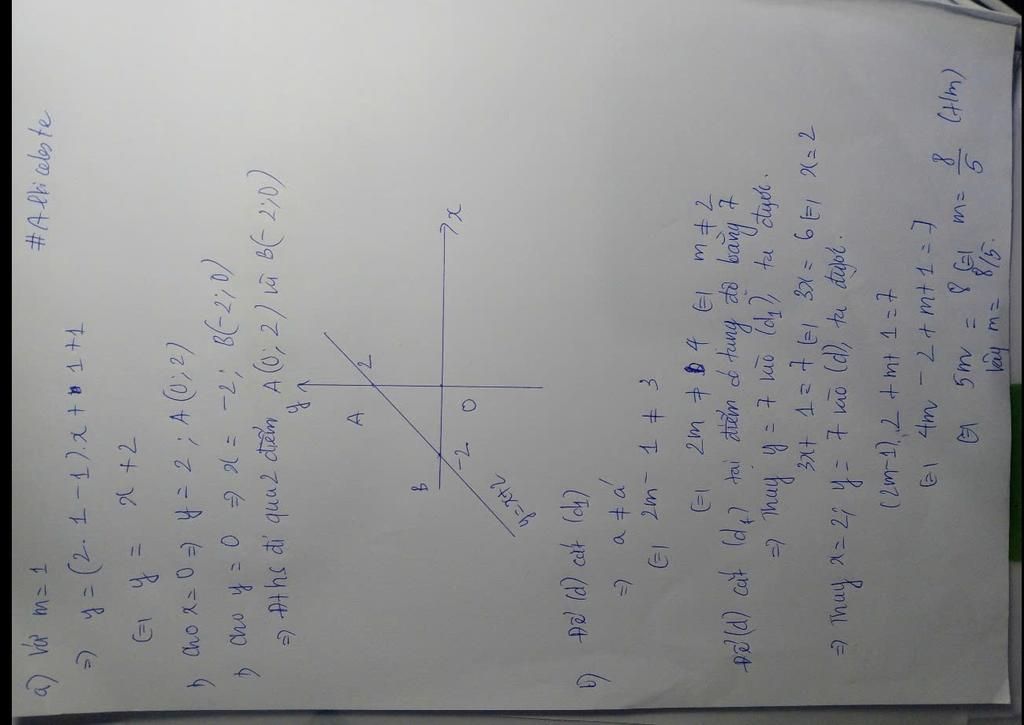 #Alkiceleste
a) Với m = 1
=) y = (2.1 - 1).x + 1 + 1
(=) y = x + 2
+) cho x = 0 =) y = 2 ; A (0; 2)
+) cho y = 0 =) x = -2; B(-2; 0)
=) Đths đi qua 2 điểm A(0; 2) và B(-2; 0)
y
A
2
B
-2
O
x
y=x+2
b) Để (d) cắt (d1)
=) a ≠ a'
(=) 2m - 1 ≠ 3
(=) 2m ≠ 4 (=) m ≠ 2
Để (d) cắt (d1) tại điểm có tung độ bằng 7
=) Thay y = 7 vào (d1), ta được.
3x + 1 = 7 (=) 3x = 6 (=) x = 2
=) Thay x = 2; y = 7 vào (d), ta được.
(2m-1).2 + m + 1 = 7
(=) 4m - 2 + m + 1 = 7
(=) 5m = 8 (=) m = 8/5 (t/m)
Vậy m = 8/5.